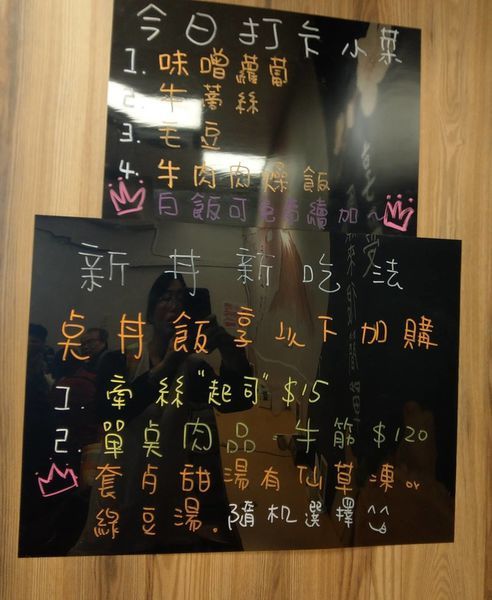 今日打卡小菜
1. 味噌蘿蔔
2. 牛蒡絲
3. 毛豆
4. 牛肉肉燥飯
白飯可免費續加~
新丼新吃法
桌丼飯享以下加購
1. 牽絲"起司"$15
2. 單桌肉品-牛筋 $120
套片甜湯有仙草凍or
綠豆湯.隨机選擇